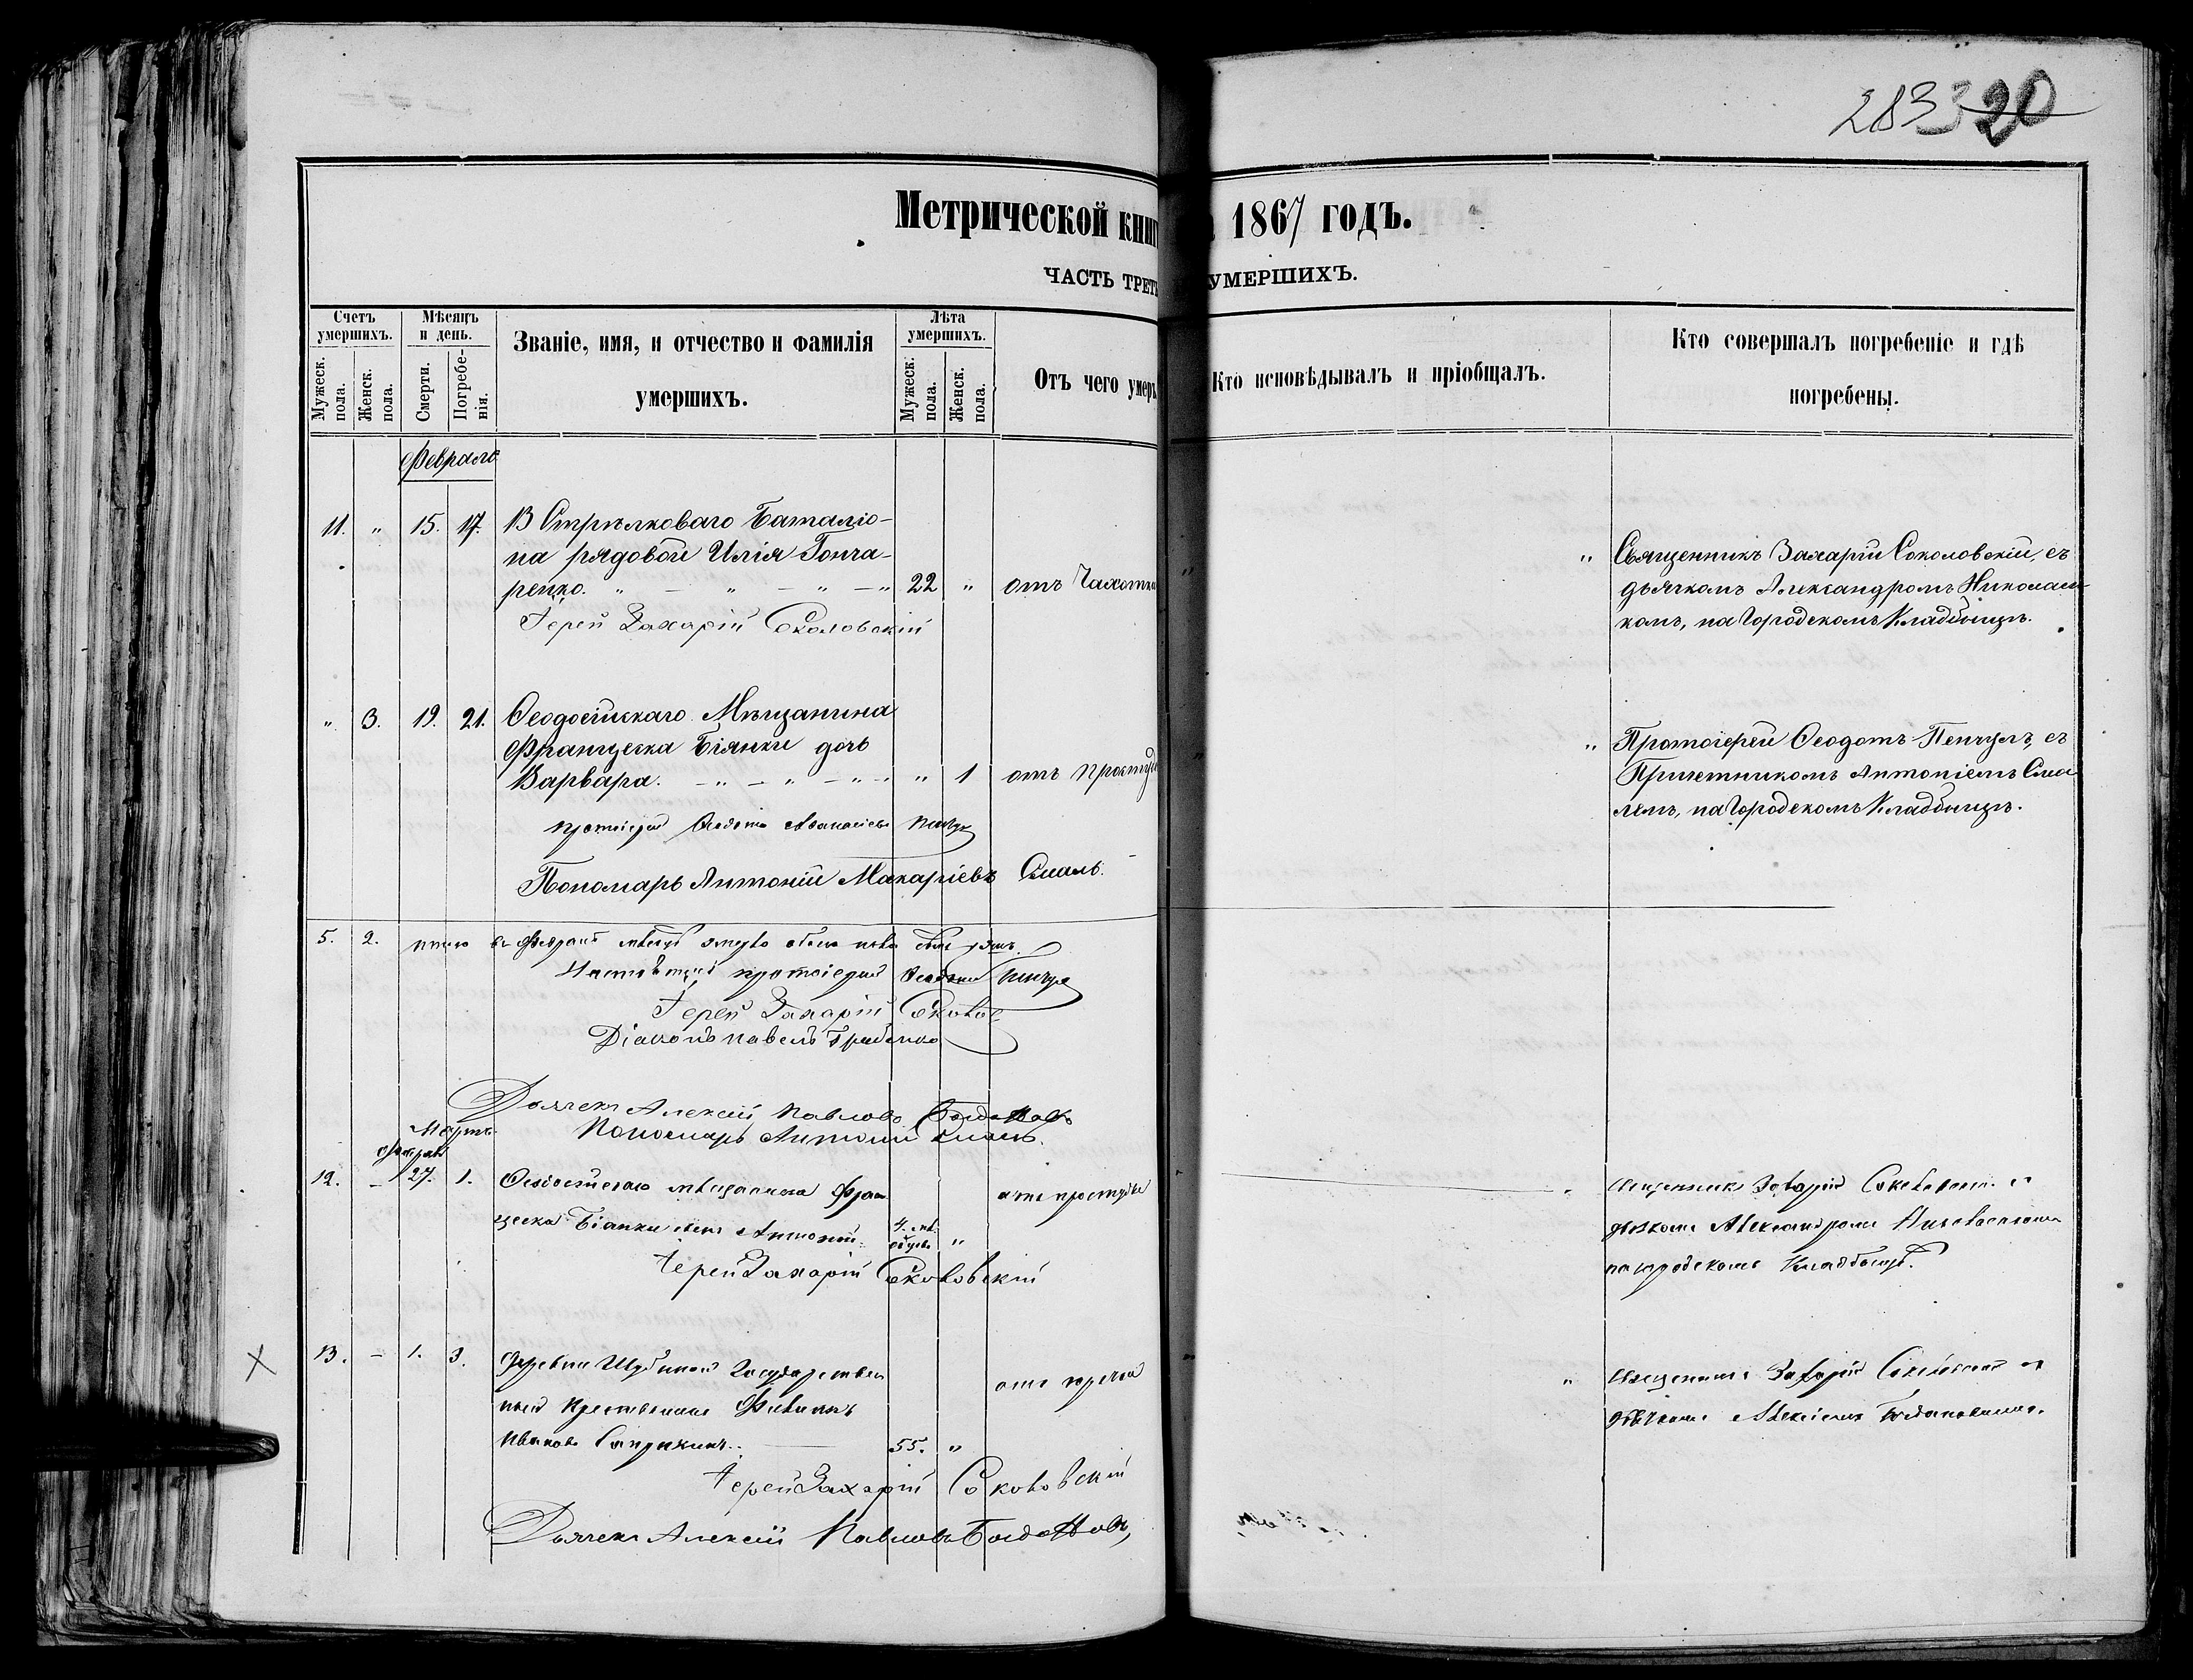 283 20
Метрической книг 1867 годъ.
ЧАСТЬ ТРЕТЬ УМЕРШИХЪ.
Счетъ умершихъ.
Мужеск. пола.
Женск. пола.
Мѣсяцъ и день.
Смерти.
Погребенія.
Званіе, имя, и отчество и фамилія
умершихъ.
Лѣта умершихъ.
Мужеск. пола.
Женск. пола.
Отъ чего умеръ
Кто исповѣдывалъ и пріобщалъ.
Кто совершалъ погребеніе и гдѣ
погребены.
Февраль
11. " 15. 17. 13 Стрѣлковаго Баталіо-
на рядовой Илія Гонча-
ренко. 22 " отъ Чахотки
Іерей Захарій Соколовскій
" Священникъ Захарій Соколовскій, съ
дьячкомъ Александромъ Николаев-
комъ, на Городскомъ Кладбищѣ.
" 3. 19. 21. Ѳеодосійскаго Мѣщанина
Франческа Біянки дочь
Варвара. " 1 отъ простуд
протоіерей Ѳеодотъ Аѳанасіевъ Пенчул
Пономарь Антоній Макаріевъ Смаль.
" Протоіерей Ѳеодотъ Пенчулъ, съ
Причетникомъ Антоніемъ Сма-
лемъ, на Городскомъ Кладбищѣ.
5. 2. итого въ Февралѣ мѣсяцѣ умерло обоего пола семь душъ.
протоіерей Ѳеодотъ Пенчул
Іерей Захарій Соколов
Діаконъ Павелъ
Дьячекъ Алексій Павловъ Богдановъ
Пономарь Антоній Смаль.
Мартъ
Февраль
12. – 27. 1. Ѳеодосійскаго мѣщанина Фран
ческа Біанки сынъ Антоній 4. " отъ простуды
Іерей Захарій Соколовскій
" Священникъ Захарій Соколовскій съ
дьячкомъ Александромъ
на городскомъ Кладбищѣ.
13. – 1. 3. Деревни Государствен
ный Крестьянинъ Филиппъ
Ивановъ 55. " отъ горячки
Іерей Захарій Соколовскій
Дьячекъ Алексій Павловъ Богдановъ,
" Священникъ Захарій Соколовскій съ
дьячкомъ Алексіемъ Богдановымъ.